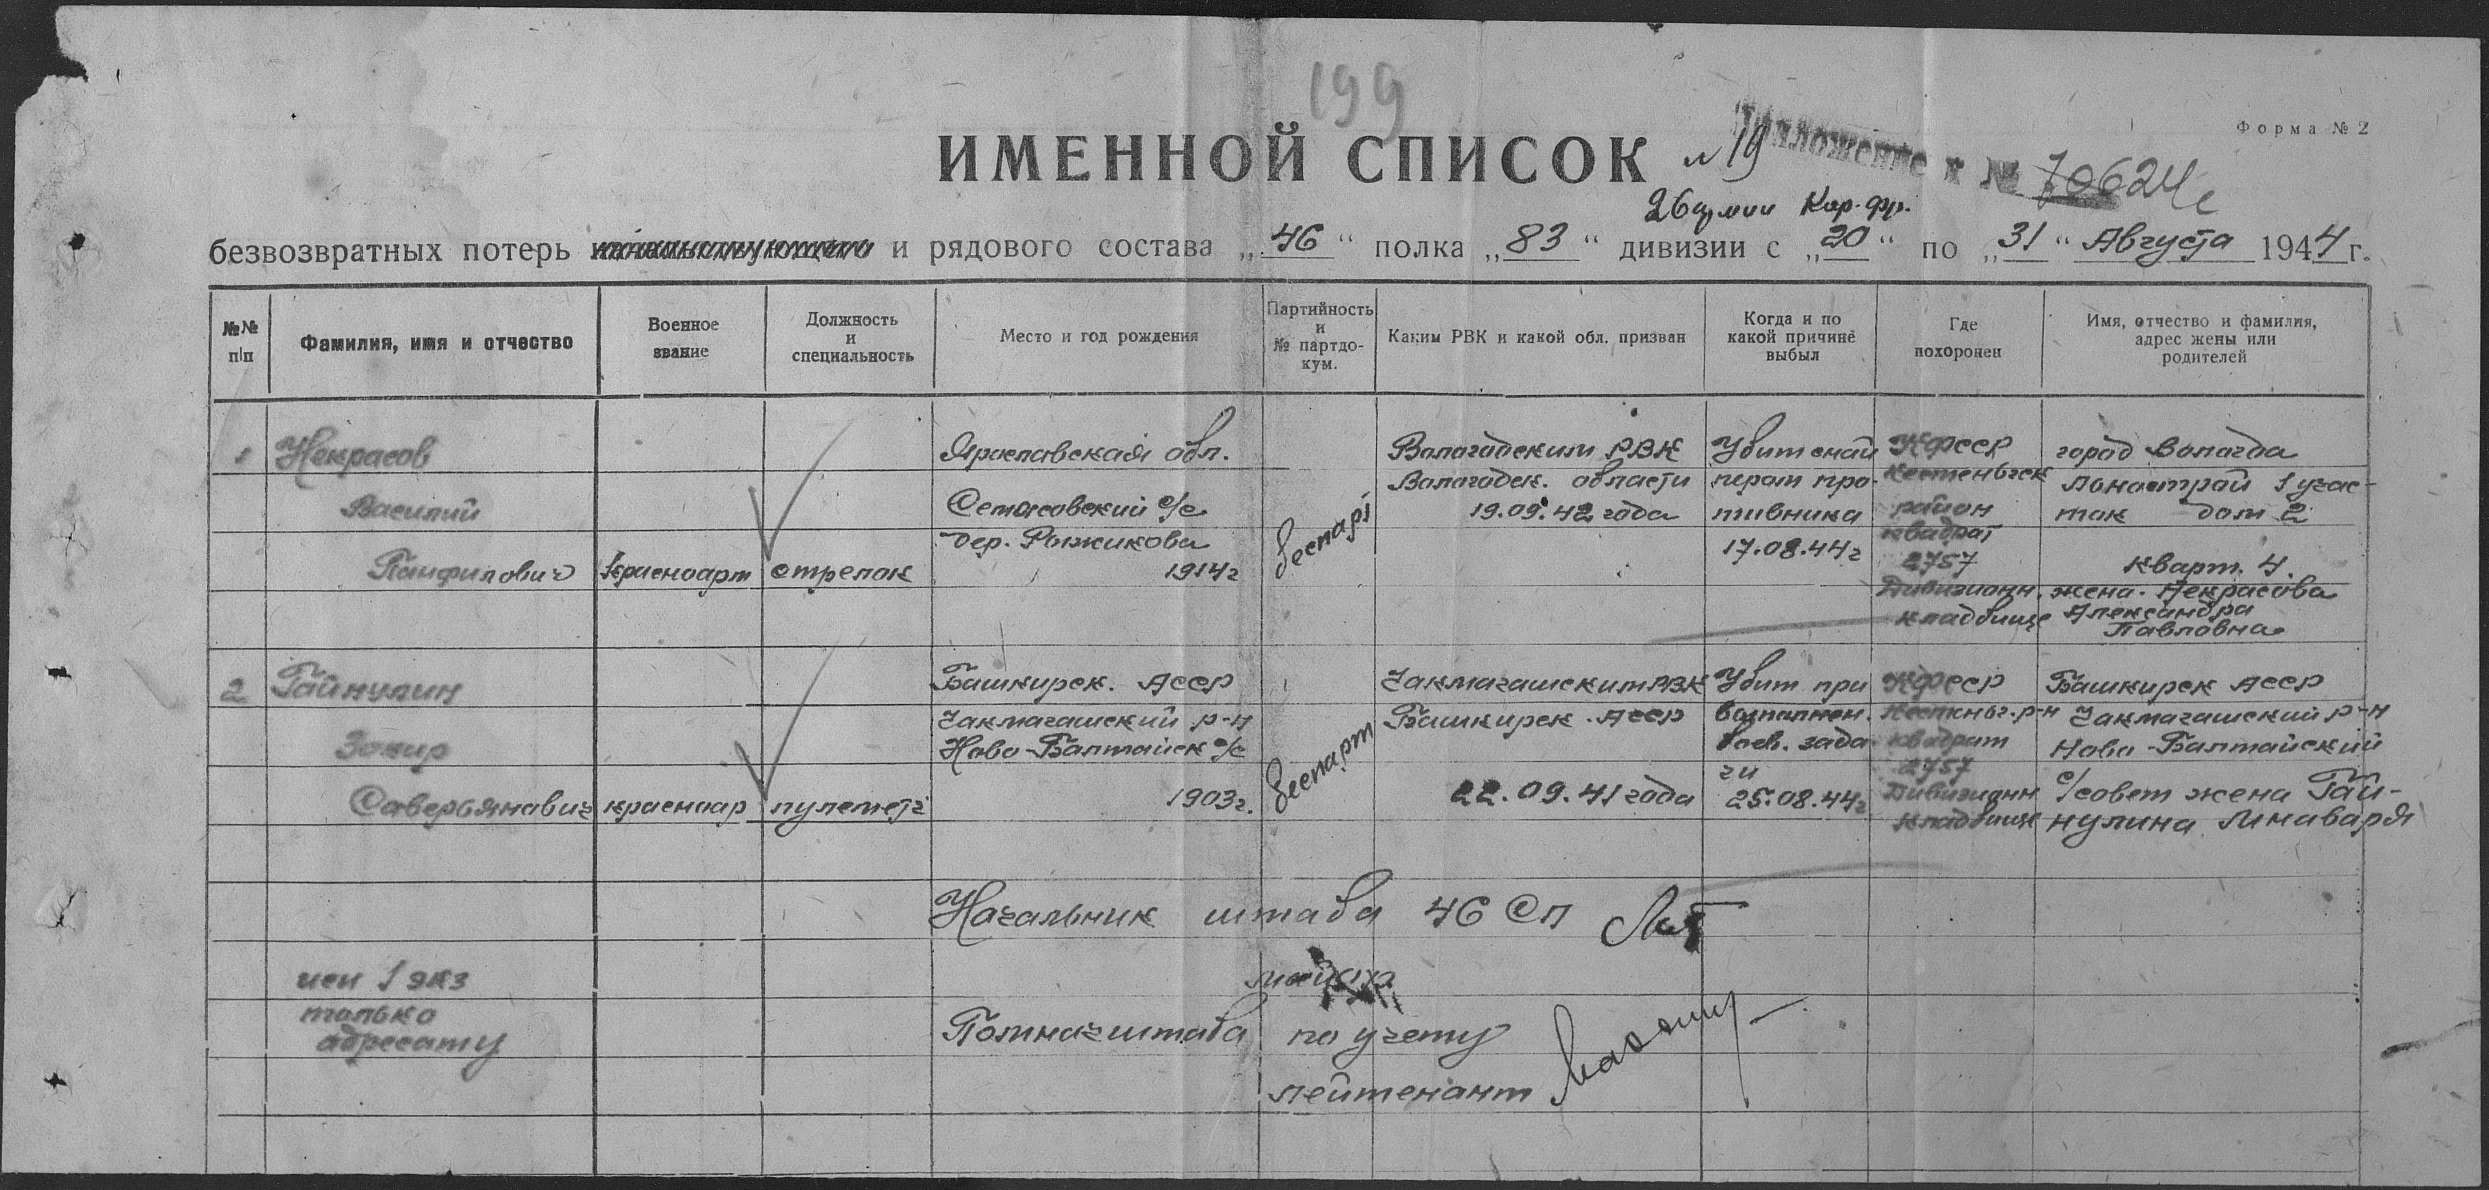 199
Форма № 2
ИМЕННОЙ СПИСОК № 19
Приложение к № 70624с
26 армии Кар. фр.
безвозвратных потерь и рядового состава „46“ полка „83“ дивизии с „20“ по „31“ Августа 1944 г.
№№ п/п
Фамилия, имя и отчество
Военное звание
Должность и специальность
Место и год рождения
Партийность и № партдокум.
Каким РВК и какой обл. призван
Когда и по какой причине выбыл
Где похоронен
Имя, отчество и фамилия, адрес жены или родителей
1
Некрасов
Василий
Панфилович
красноарм
стрелок
Ярославская обл.
с/с
дер. Рыжикова
1914г
беспарт
Вологодским РВК
Вологодск. области
19.09.42 года
Убит снай
пером про-
тивника
17.08.44г
КФССР
Кестеньгск
район
квадрат
2757
Дивизионн.
кладбище
город Вологда
1 учас-
ток дом 2
кварт. 4.
жена. Некрасова
Александра
Павловна
2
Гайнулин
Закир
Саверьянавич
красноар
пулеметч
Башкирск. АССР
Чакмагашский р-н
Ново-Балтайск с/с
1903г.
беспарт
Чакмагашским РВК
Башкирск. АССР
22.09.41 года
Убит при
выполнен.
боев. зада
чи
25.08.44г
КФССР
Кестеньг. р-н
квадрат
2757
Дивизионн
кладбище
Башкирск АССР
Чакмагашский р-н
Ново-Балтайский
с/совет жена Гай-
нулина
Начальник штаба 46 СП
майор
исп 1 экз
только
адресату
Помначштаба по учету
лейтенант